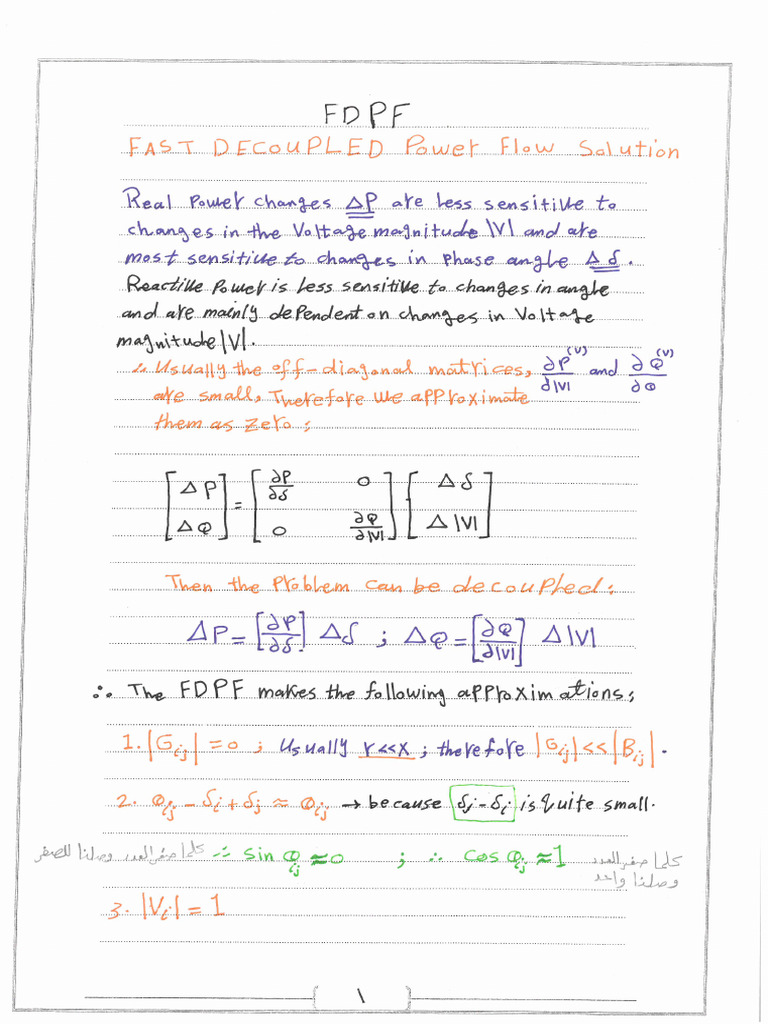 FDPF
FAST DECOUPLED Power Flow Solution
Real Power changes ΔP are less sensitive to
changes in the Voltage magnitude |V| and are
most sensitive to changes in phase angle Δδ.
Reactive Power is less sensitive to changes in angle
and are mainly dependent on changes in Voltage
magnitude |V|.
∴ Usually the off-diagonal matrices, ∂P^(V)/∂|V| and ∂Q^(V)/∂Q
are small, Therefore we approximate
them as zero:
[ΔP; ΔQ] = [∂P/∂δ 0; 0 ∂Q/∂|V|] [Δδ; Δ|V|]
Then the Problem can be decoupled:
ΔP = [∂P/∂δ] Δδ ; ΔQ = [∂Q/∂|V|] Δ|V|
∴ The FDPF makes the following approximations;
1. |Gij| = 0 ; Usually r<<x ; therefore |Gij| << |Bij|.
2. θij - δi + δj ≈ θij → because δj - δi is quite small.
كلما صغر العدد وصلنا للصفر ∴ sin θij ≈ 0 ; ∴ cos θij ≈ 1 كلما صغر العدد
وصلنا واحد
3. |Vi| = 1
١